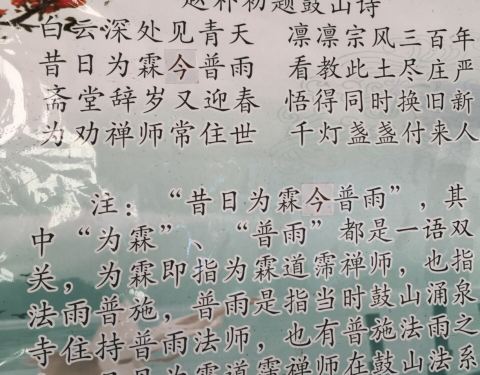 赵朴初题鼓山诗
白云深处见青天 凛凛宗风三百年
昔日为霖今普雨 看教此土尽庄严
斋堂辞岁又迎春 悟得同时换旧新
为劝禅师常住世 千灯盏盏付来人
注：“昔日为霖今普雨”，其
中“为霖”、“普雨”都是一语双
关，为霖即指为霖道霈禅师，也指
法雨普施，普雨是指当时鼓山涌泉
寺住持普雨法师，也有普施法雨之
为霖道霈禅师在鼓山法系